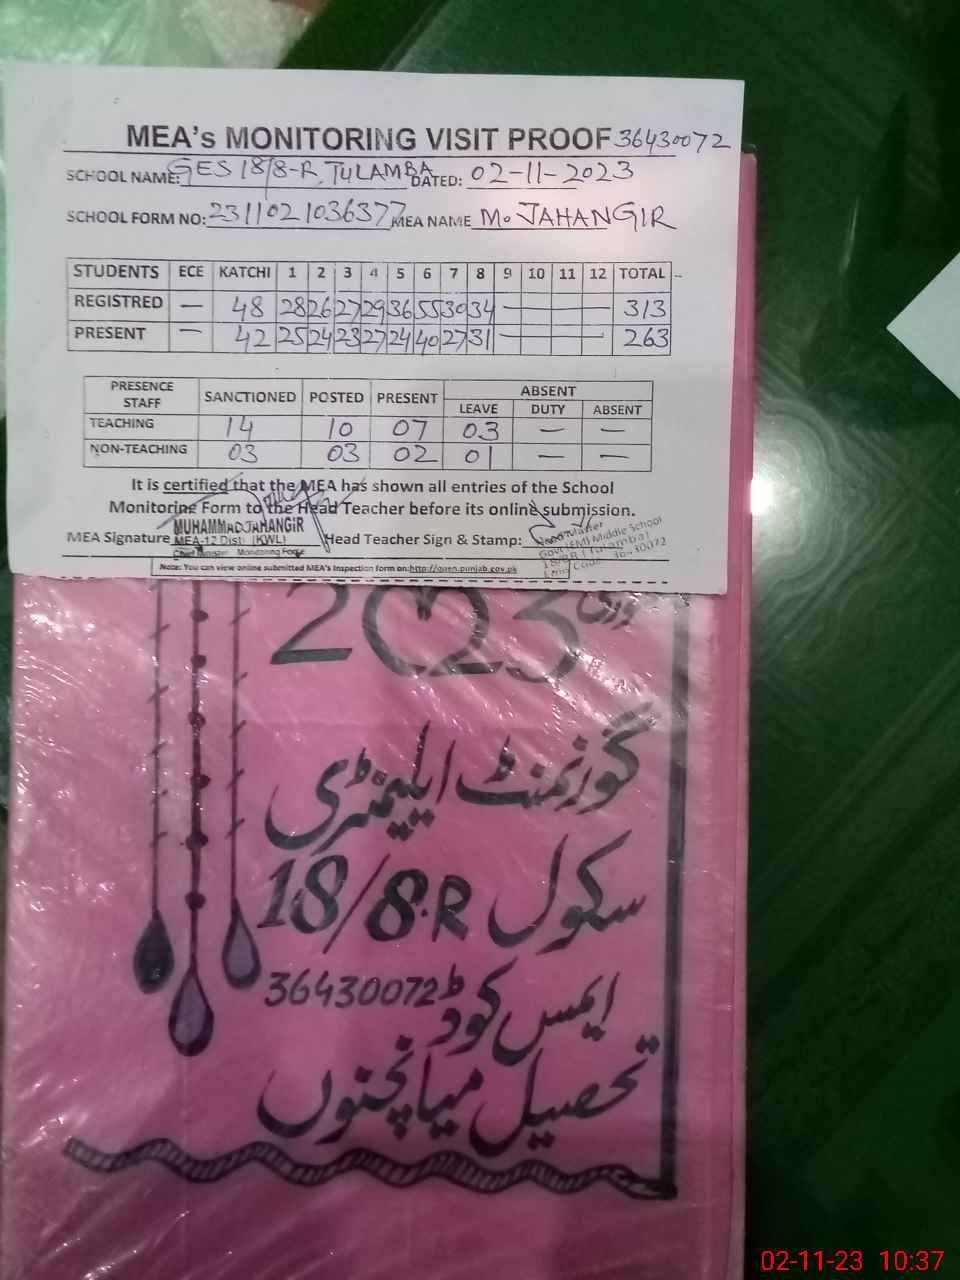 MEA's MONITORING VISIT PROOF 36430072
SCHOOL NAME: GES 18/8-R, TULAMBA DATED: 02-11-2023
SCHOOL FORM NO: 2311021036377 MEA NAME M. JAHANGIR
STUDENTS ECE KATCHI 1 2 3 4 5 6 7 8 9 10 11 12 TOTAL
REGISTRED — 48 28 26 27 29 36 55 30 34 — 313
PRESENT — 42 25 24 23 27 24 40 27 31 — 263
PRESENCE STAFF SANCTIONED POSTED PRESENT ABSENT
LEAVE DUTY ABSENT
TEACHING 14 10 07 03 — —
NON-TEACHING 03 03 02 01 — —
It is certified that the MEA has shown all entries of the School
Monitoring Form to the Head Teacher before its online submission.
MEA Signature MUHAMMAD JAHANGIR Head Teacher Sign & Stamp: Head Master
MEA-12 Distt (KWL) Govt (EM) Middle School
Chief Minister Monitoring Force 18/8R Tulamba
36430072
Note: You can view online submitted MEA's Inspection form on:http://open.punjab.gov.pk
2023
گورنمنٹ ایلیمنٹری
سکول 18/8.R
ایمس کوڈ 36430072
تحصیل میانچنوں
02-11-23 10:37